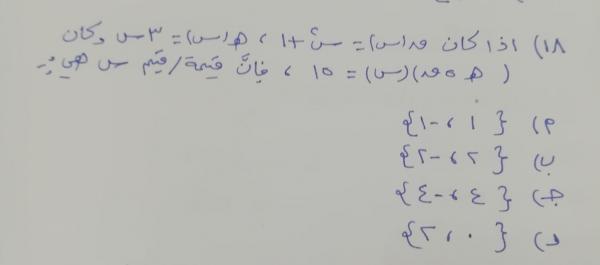 ١٨) اذا كان ق(س) = س٢ + ١ ، هـ(س) = ٣س وكان
( هـ ٥ ق)(س) = ١٥ ، فإنَّ قيمة/قيم س هي :-
م) { ١ ، -١}
ب) { ٢ ، -٢}
ج) { ٤ ، -٤}
د) { ٠ ، ٢}